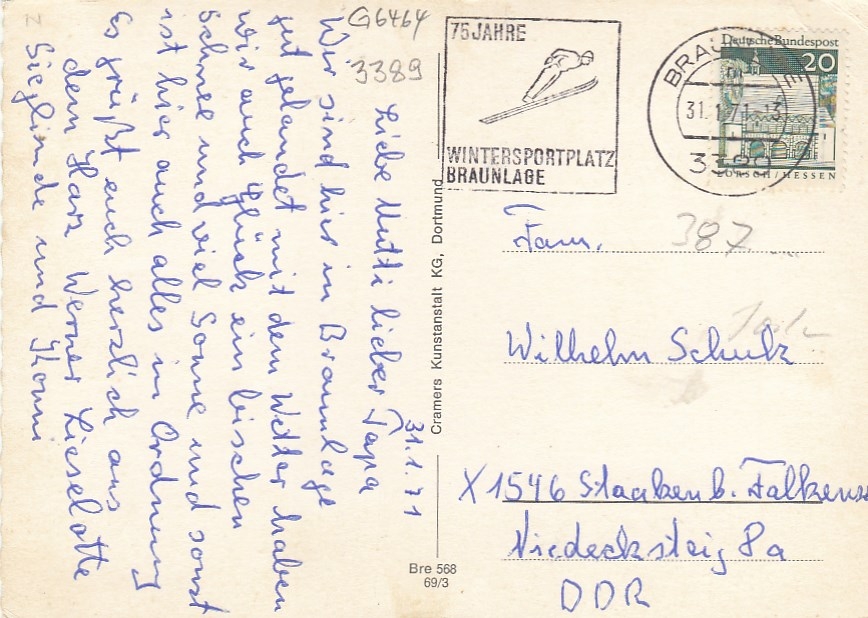 G6464
3389
31.1.71
Liebe Mutti lieber Papa
Wir sind hier in Braunlage
gut gelandet mit dem Wetter haben
wir auch Glück ein bischen
Schnee und viel Sonne und sonst
ist hier auch alles in Ordnung
Es grüßt euch herzlich aus
dem Harz Werner Lieselotte
Sieglinde und
Cramers Kunstanstalt KG, Dortmund
Bre 568
69/3
75 JAHRE
WINTERSPORTPLATZ
BRAUNLAGE
31.1.71-13
3389
Deutsche Bundespost
20
LORSCH/HESSEN
387
Fam.
Wilhelm Schulz
X1546 Staaken b.
8a
DDR